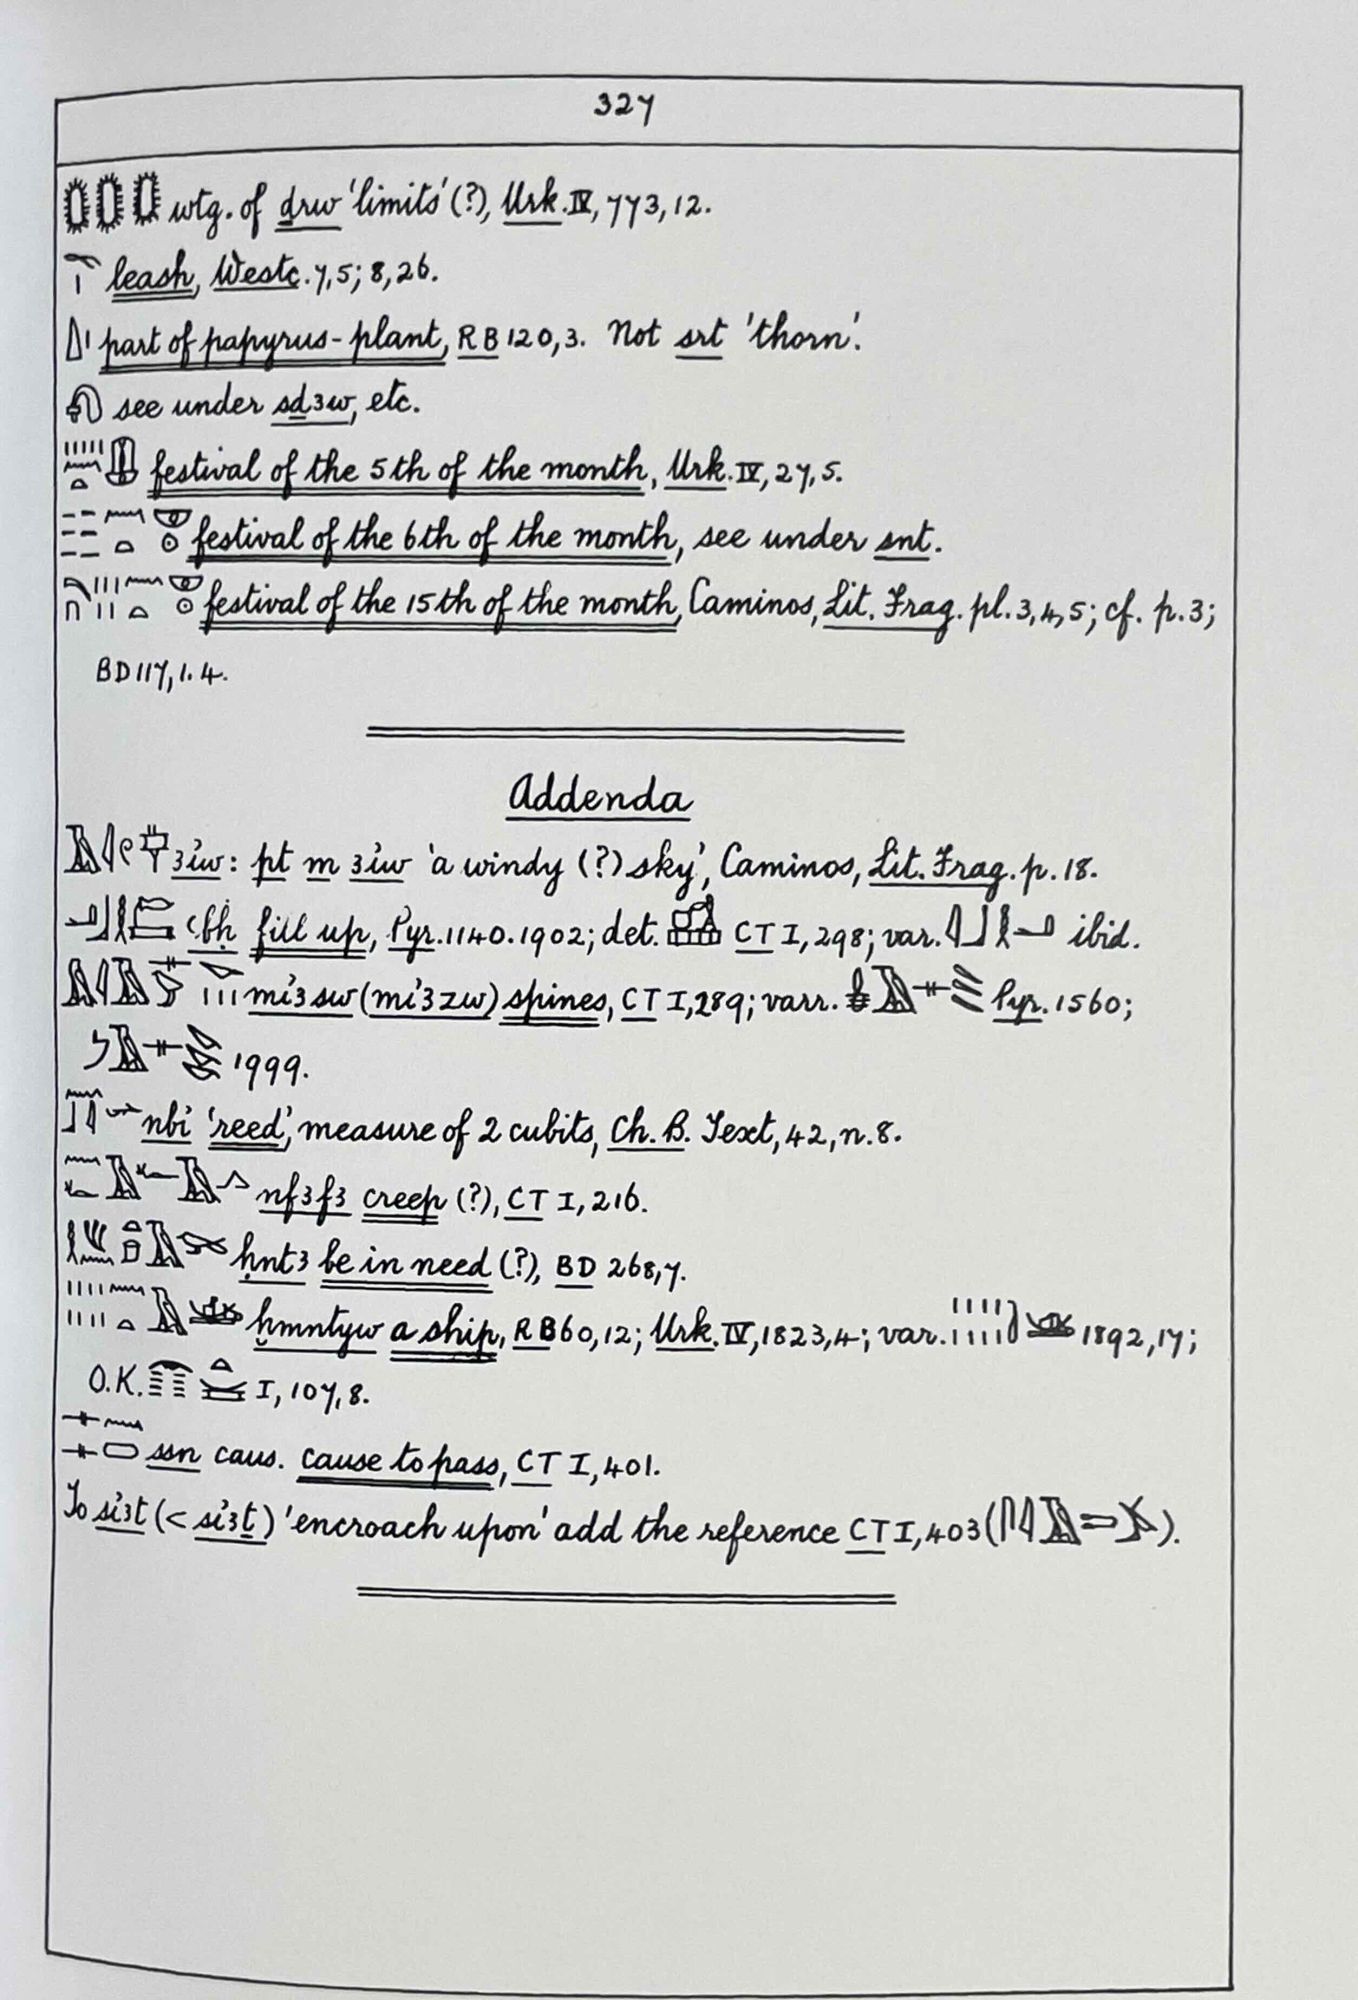 327
wtg. of ḏrw 'limits' (?), Urk. IV, 773, 12.
leash, Westc. 7, 5; 8, 26.
part of papyrus-plant, RB 120, 3. Not srt 'thorn'.
see under sḏꜣw, etc.
festival of the 5th of the month, Urk. IV, 27, 5.
festival of the 6th of the month, see under snt.
festival of the 15th of the month, Caminos, Lit. Frag. pl. 3, 4, 5; cf. p. 3;
BD 117, 1. 4.
Addenda
ꜣi̓w: pt m ꜣi̓w 'a windy (?) sky', Caminos, Lit. Frag. p. 18.
ꜥbḥ fill up, Pyr. 1140. 1902; det. CT I, 298; var. ibid.
mi̓ꜣsw (mi̓ꜣzw) spines, CT I, 289; varr. Pyr. 1560;
1999.
nbi̓ 'reed', measure of 2 cubits, Ch. B. Text, 42, n. 8.
nfꜣfꜣ creep (?), CT I, 216.
ḥntꜣ be in need (?), BD 268, 7.
ḫmntyw a ship, RB 60, 12; Urk. IV, 1823, 4; var. 1892, 17;
O.K. I, 107, 8.
ssn caus. cause to pass, CT I, 401.
To si̓ꜣt (< si̓ꜣṯ) 'encroach upon' add the reference CT I, 403 ( ).